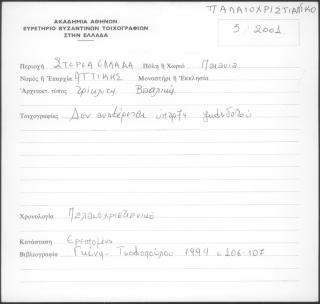 ΠΑΛΑΙΟΧΡΙΣΤΙΑΝΙΚΟ
ΑΚΑΔΗΜΙΑ ΑΘΗΝΩΝ
ΕΥΡΕΤΗΡΙΟ ΒΥΖΑΝΤΙΝΩΝ ΤΟΙΧΟΓΡΑΦΙΩΝ
ΣΤΗΝ ΕΛΛΑΔΑ
5 / 2001
Περιοχή ΣΤΕΡΕΑ ΕΛΛΑΔΑ Πόλη ἤ Χωριό Παιανια
Νομός ἤ Ἐπαρχία ΑΤΤΙΚΗΣ Μοναστήρι ἤ Ἐκκλησία
Ἀρχιτεκτ. τύπος τρίκλιτη Βασιλική
Τοιχογραφίες Δεν αναφέρεται υπαρξη
Χρονολογία Παλαιοχριστιανικό
Κατάσταση Ερειπωμένη
Βιβλιογραφία Γκίνη - Τσοφοπούλου 1994 σ 106-107